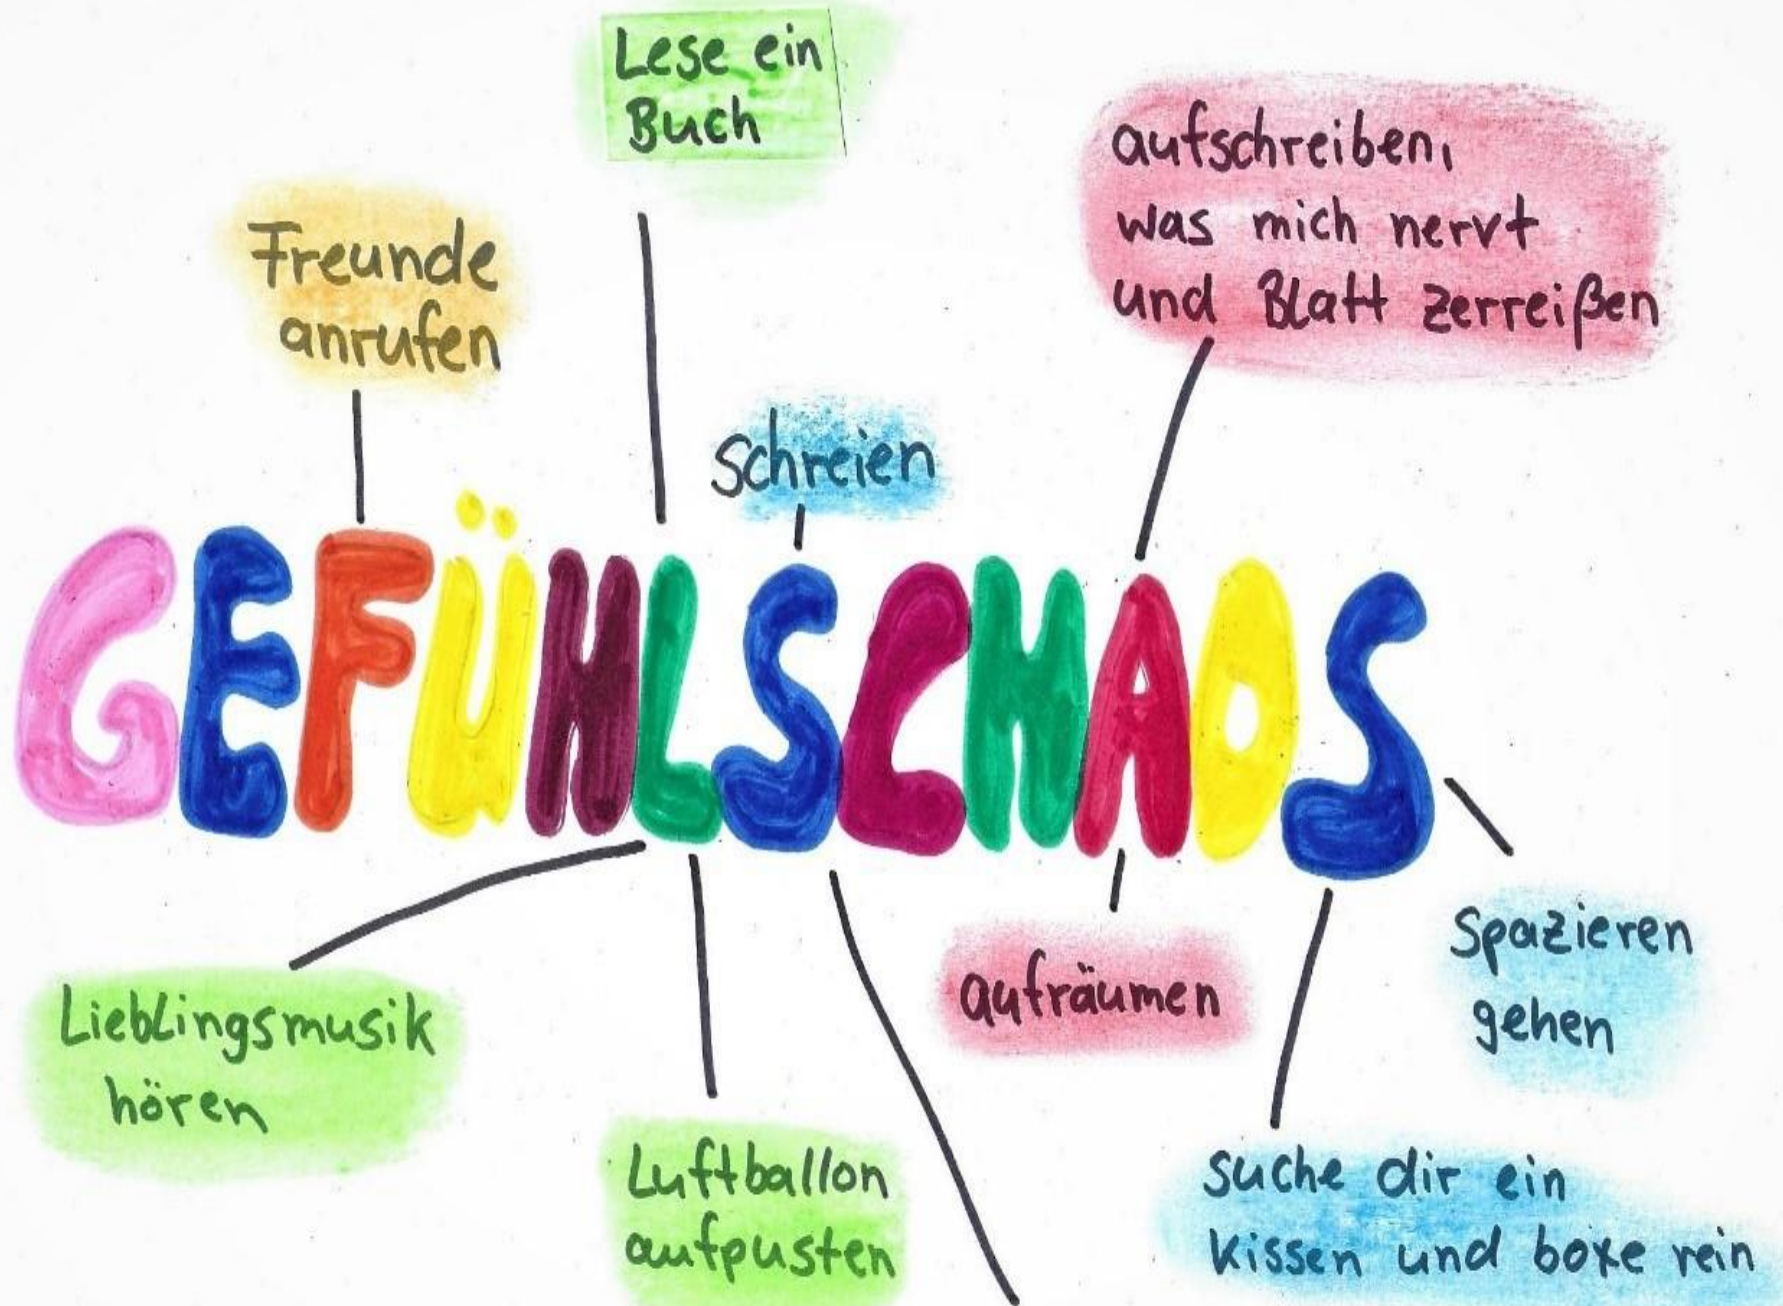 Lese ein
Buch
aufschreiben,
was mich nervt
und Blatt zerreißen
Freunde
anrufen
schreien
GEFÜHLSCHAOS
Lieblingsmusik
hören
Luftballon
aufpusten
aufräumen
spazieren
gehen
suche dir ein
Kissen und boxe rein